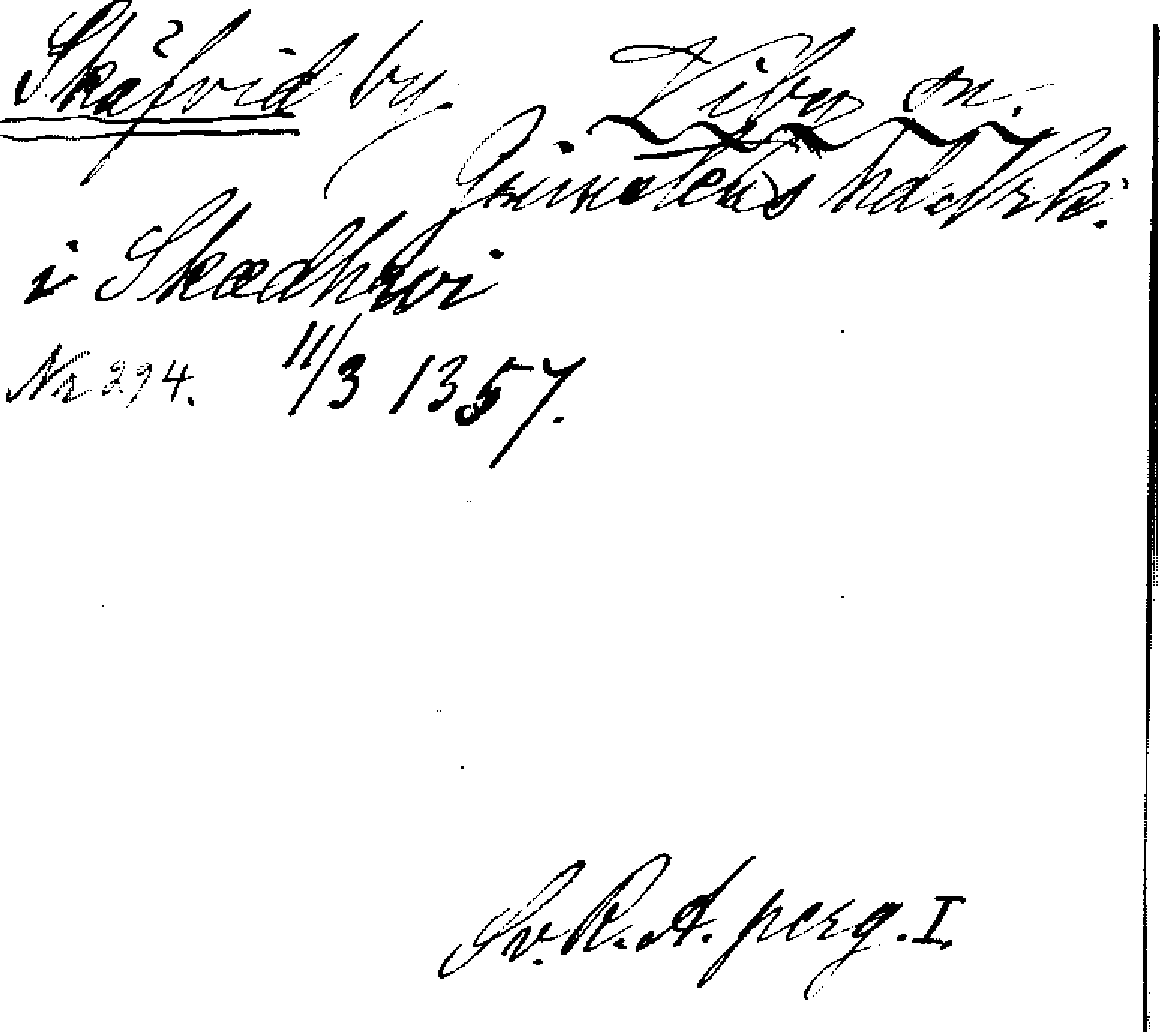 Skäfvid by. Viby sn.
Grimstens hd. Nrk.
i Skædhwi
Nr 294. 11/3 1357.
Sv. R. A. perg. I.